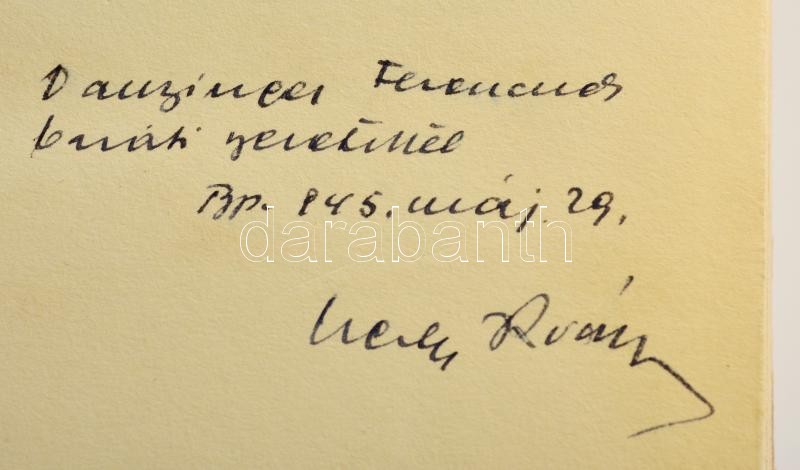 Danzinger Ferencnek
baráti szeretettel
Bp. 945. máj. 29.
darabanth